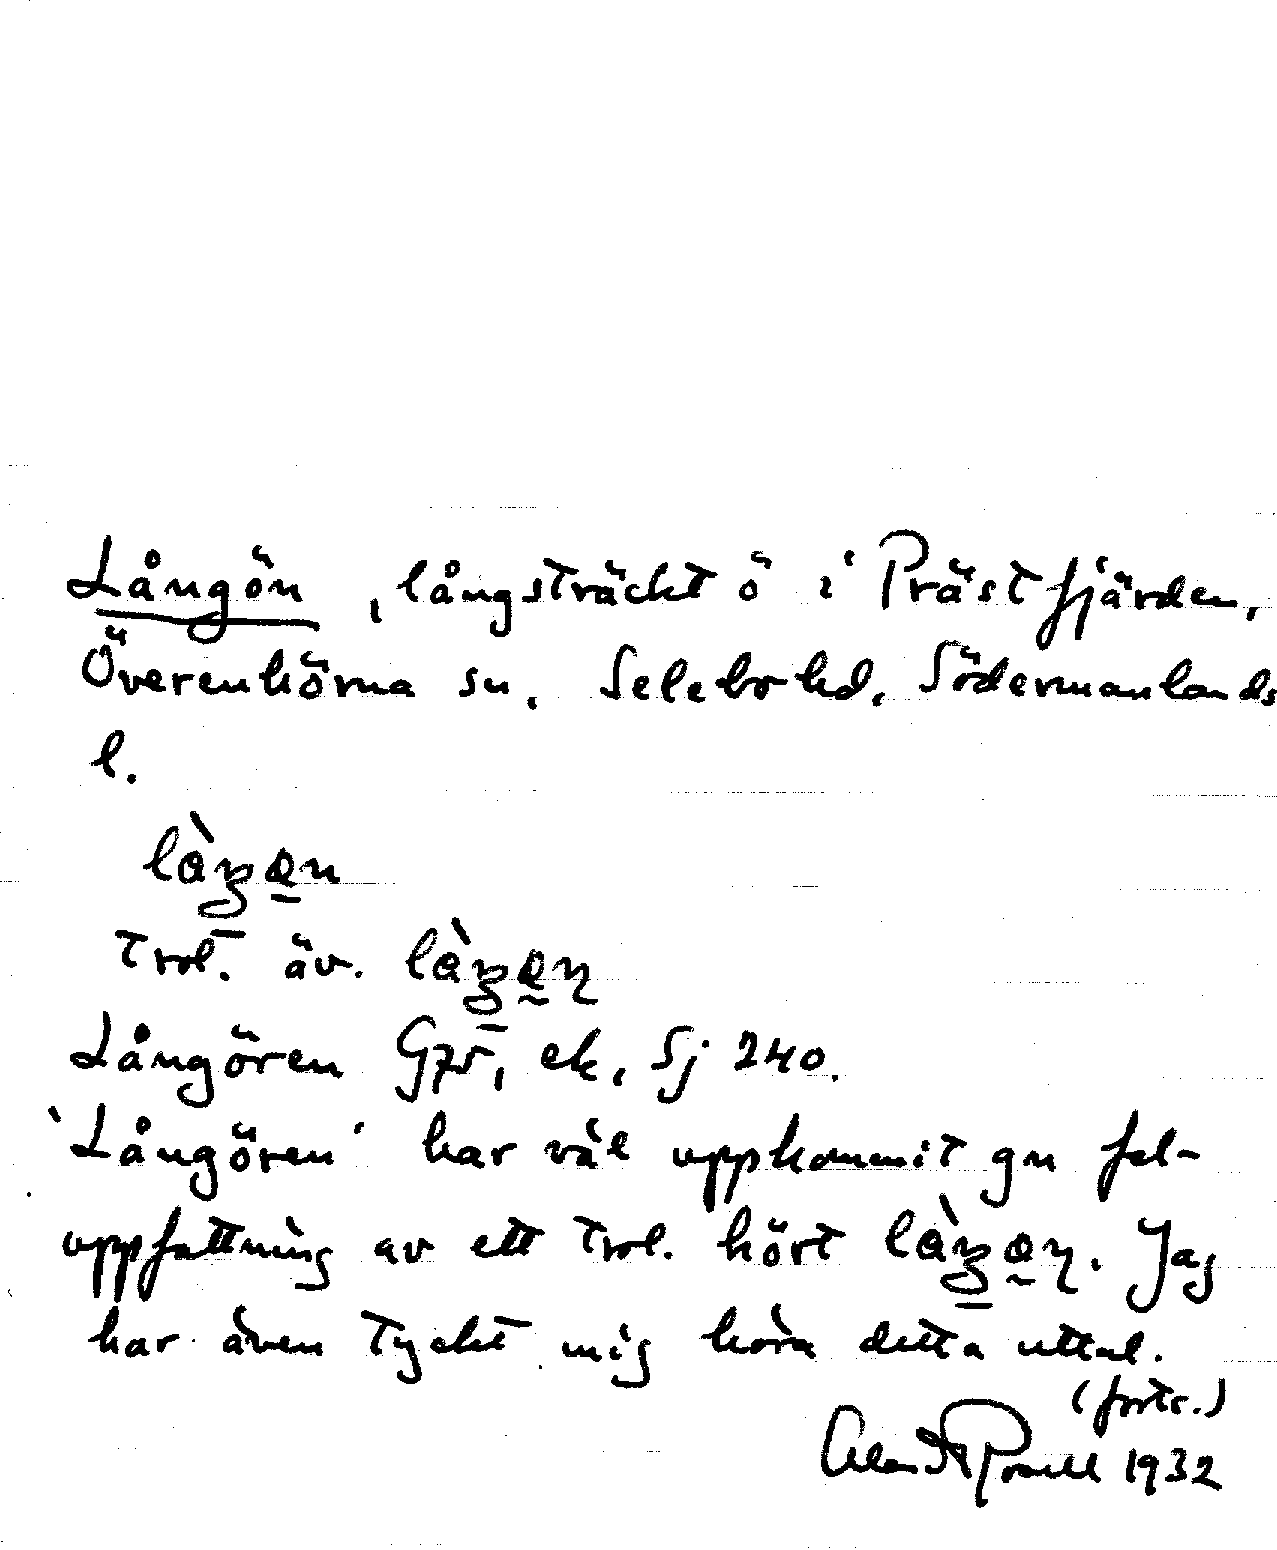 Långön, långsträckt ö i Prästfjärden,
Överenhörna sn, Selebo hd, Södermanlands
l.
trol. äv.
Långören Gzs, ek, Sj 240.
'Långören' har väl uppkommit gn fel-
uppfattning av ett trol. hört
Jag
har även tyckt mig höra detta uttal.
(forts.)
1932